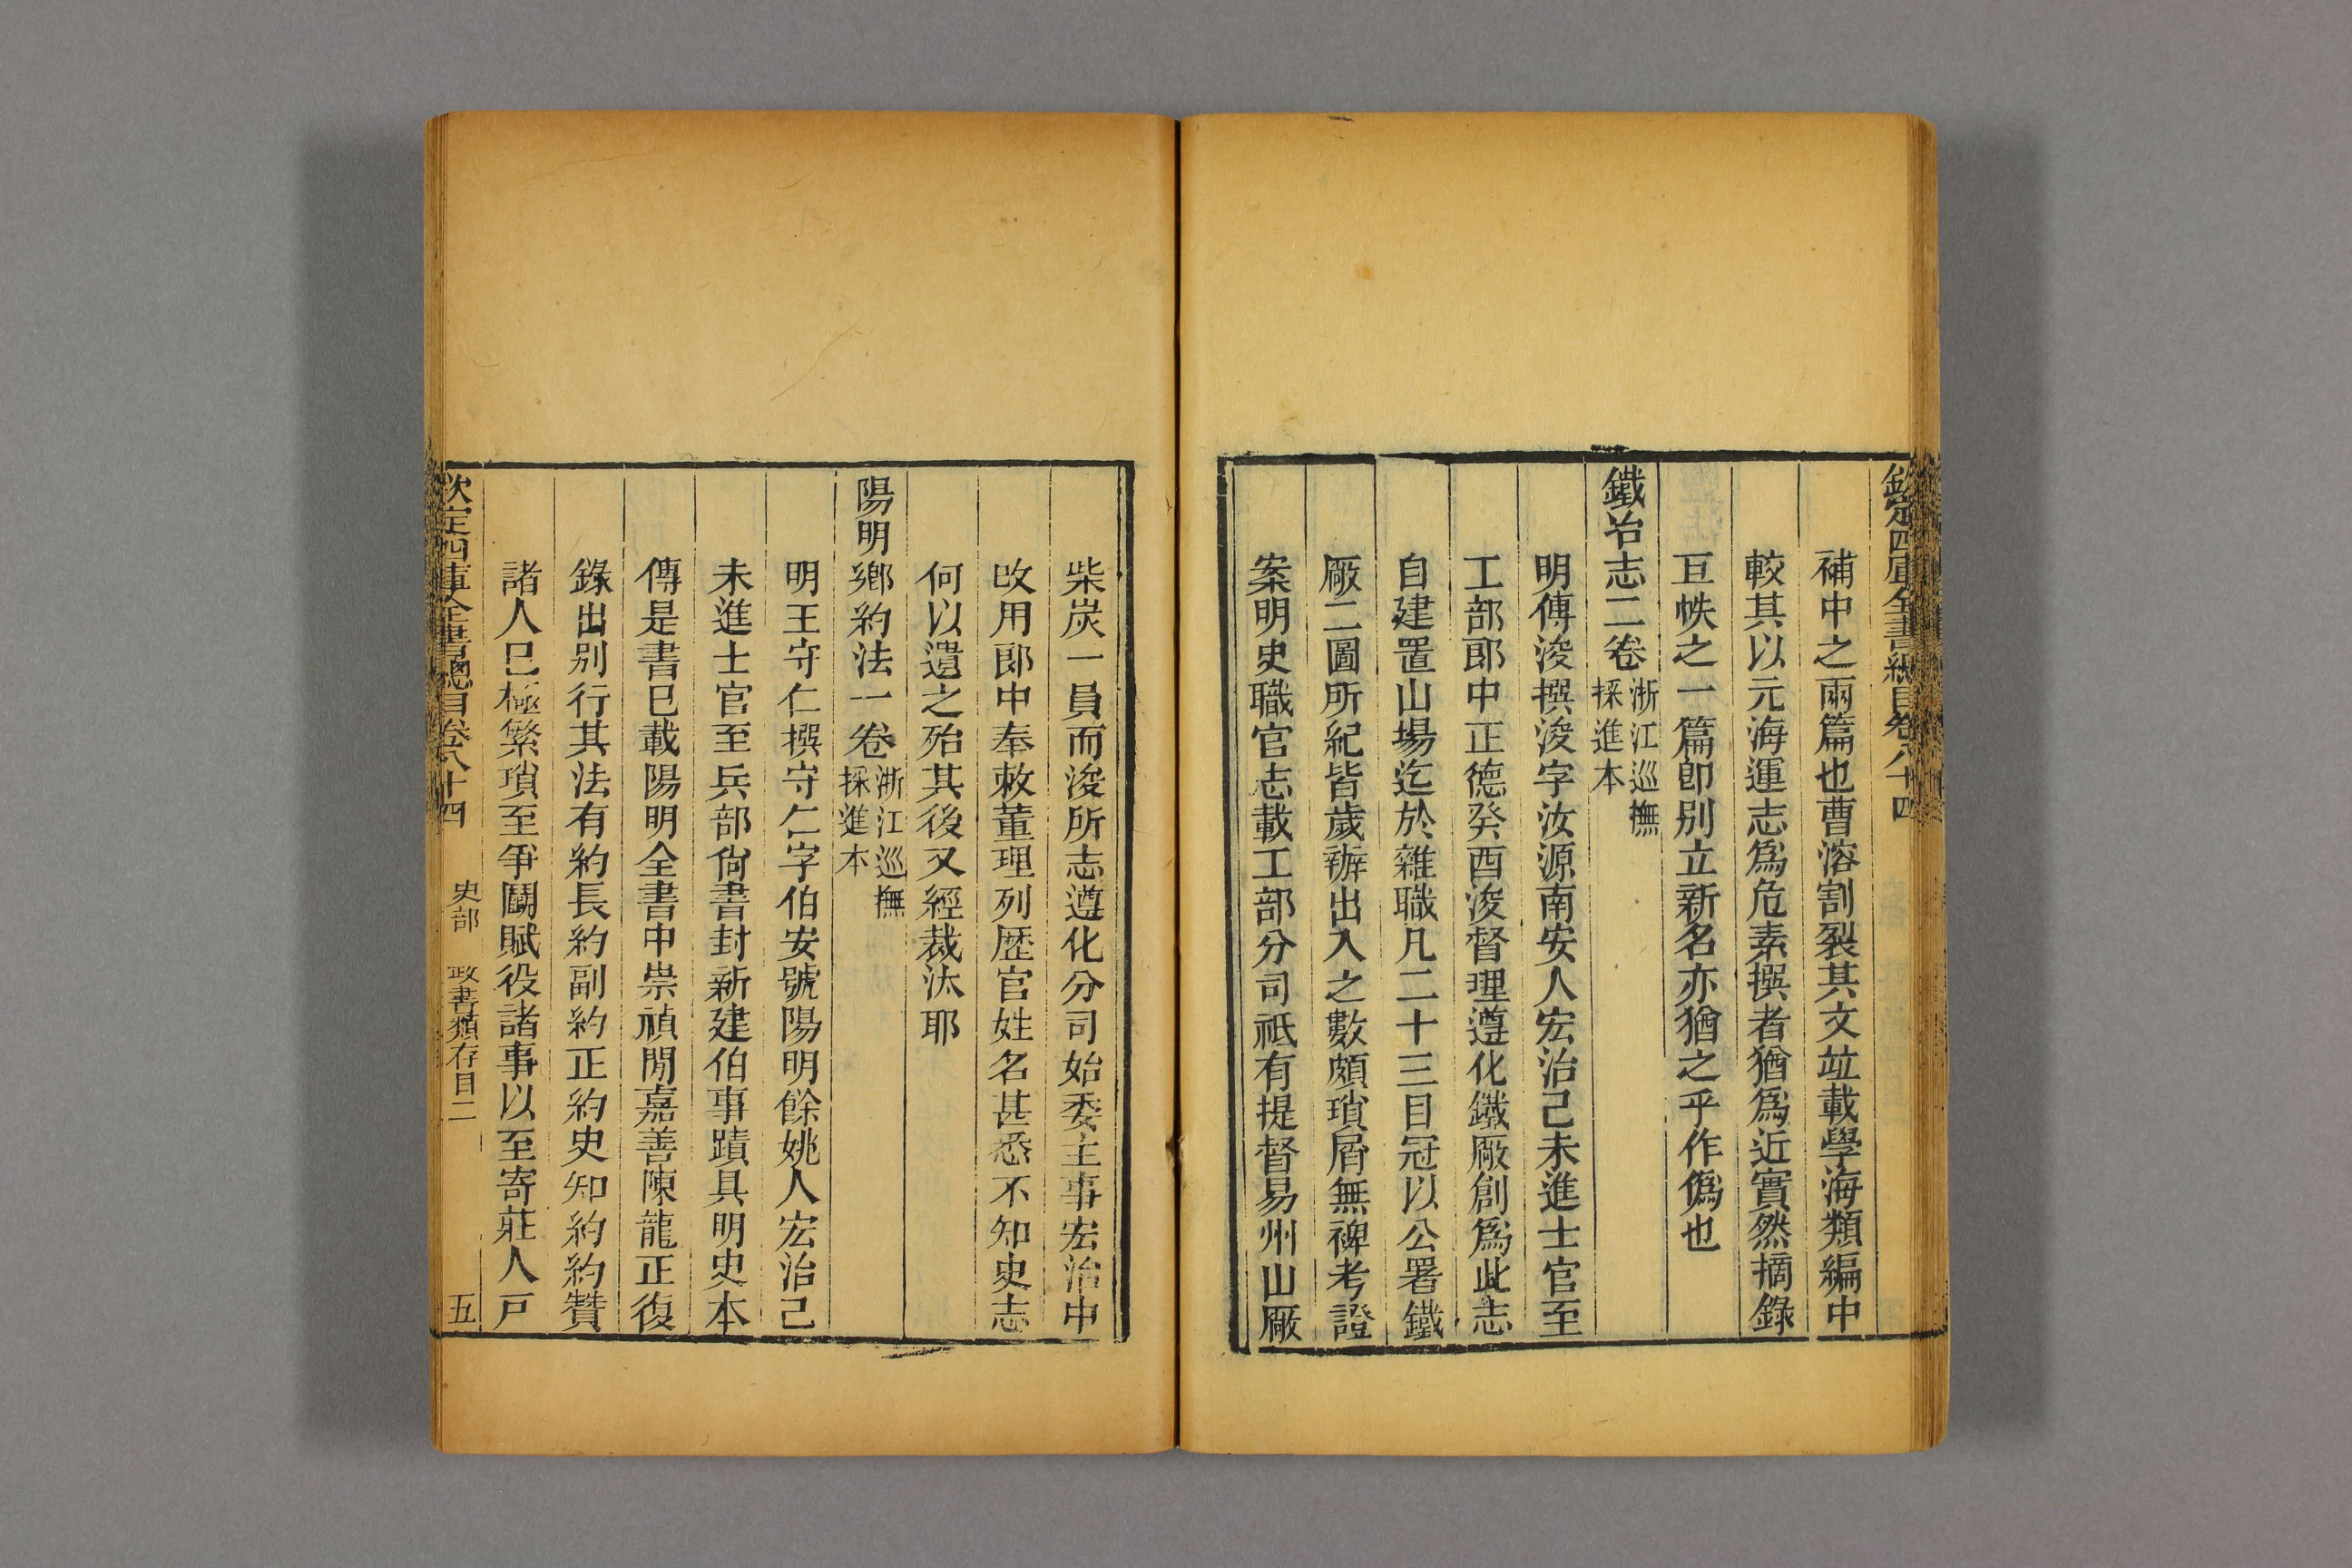 欽定四庫全書總目卷八十四
補中之兩篇也曹溶割裂其文竝載學海類編中
較其以元海運志爲危素撰者猶爲近實然摘錄
亘帙之一篇卽別立新名亦猶之乎作僞也
鐵冶志二卷浙江巡撫採進本
明傅浚撰浚字汝源南安人宏治己未進士官至
工部郎中正德癸酉浚督理遵化鐵廠創爲此志
自建置山場迄於雜職凡二十三目冠以公署鐵
廠二圖所紀皆歲辦出入之數頗瑣屑無裨考證
案明史職官志載工部分司祇有提督易州山廠
柴炭一員而浚所志遵化分司始委主事宏治中
改用郎中奉敕董理列歷官姓名甚悉不知史志
何以遺之殆其後又經裁汰耶
陽明鄕約法一卷浙江巡撫採進本
明王守仁撰守仁字伯安號陽明餘姚人宏治己
未進士官至兵部尙書封新建伯事蹟具明史本
傳是書已載陽明全書中崇禎閒嘉善陳龍正復
錄出別行其法有約長約副約正約史知約約贊
諸人已極繁瑣至爭鬭賦役諸事以至寄莊人戸
欽定四庫全書總目卷八十四 史部 政書類存目二 五